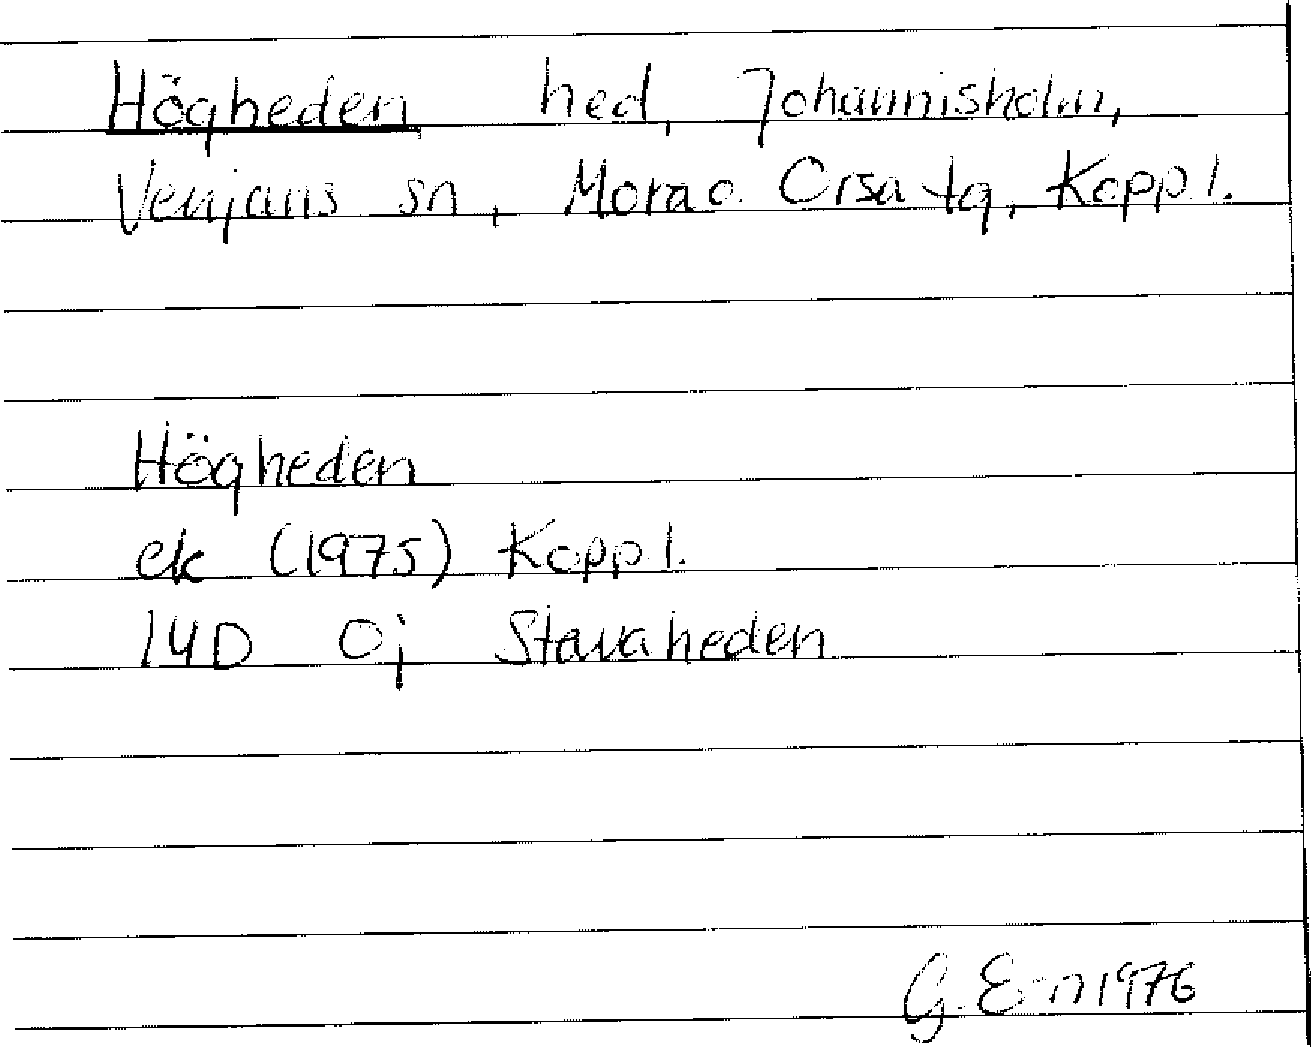 Högheden hed, Johannisholm,
Venjans sn, Mora o. Orsa tg, Kopp.l.
Högheden
ek (1975) Kopp l.
14D 0j Stavaheden
G. E-n 1976